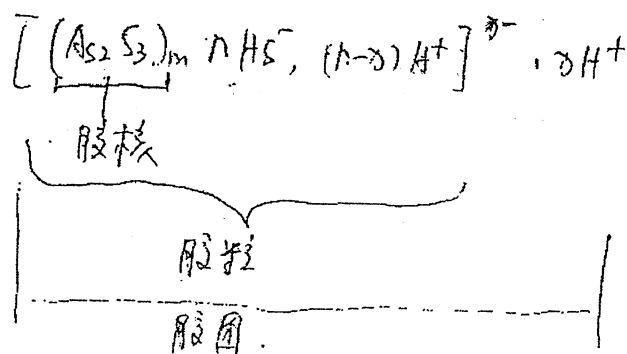 [(As2S3)m nHS⁻, (n-x)H⁺]ˣ⁻ · xH⁺
胶核
胶粒
胶团.